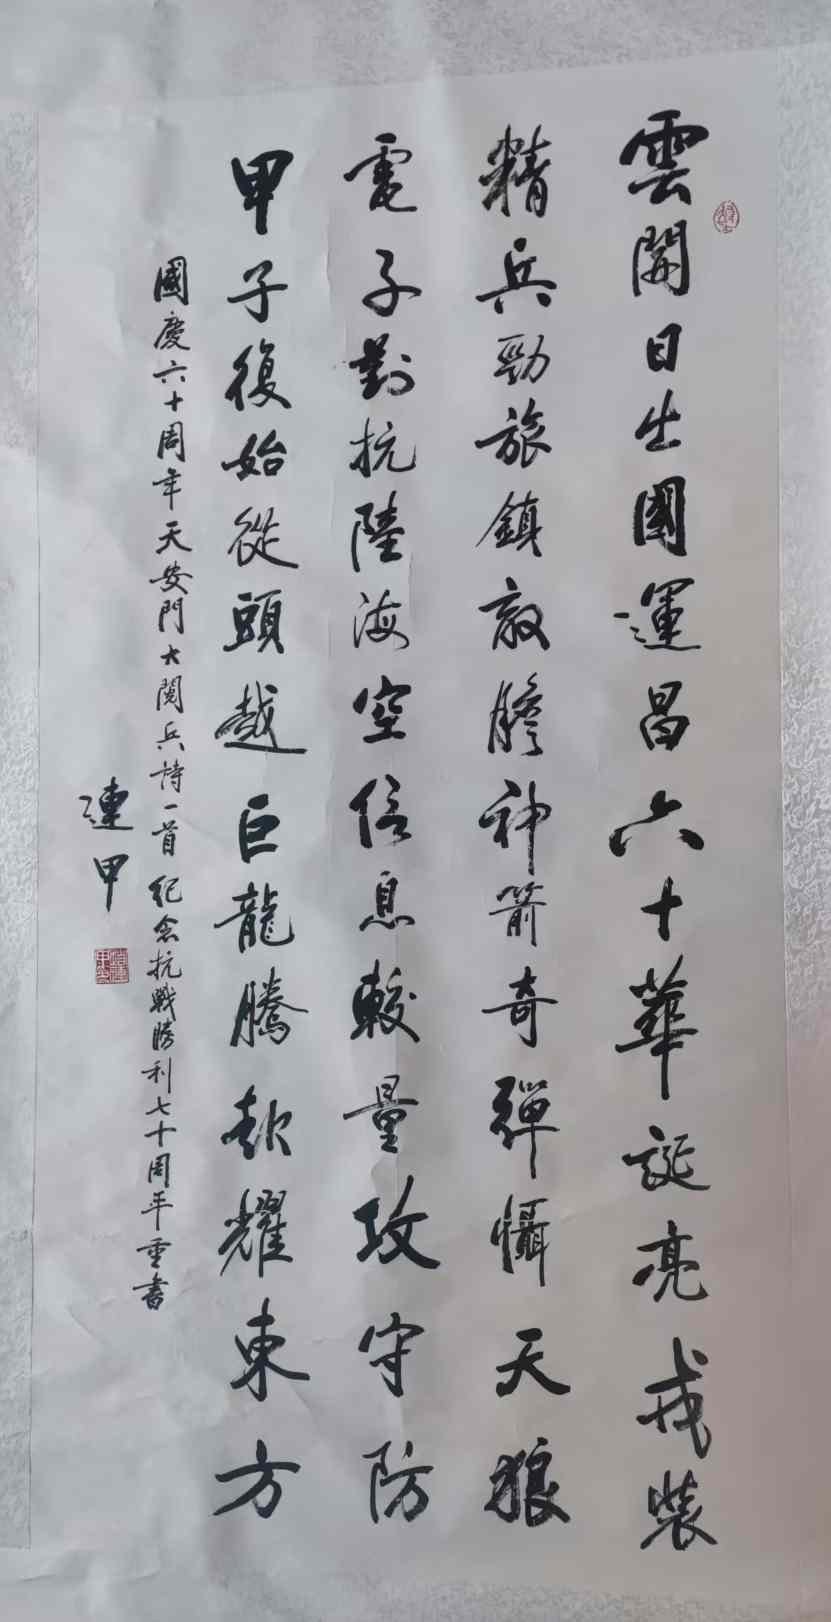 雲開日出國運昌六十華誕亮戎裝
精兵勁旅鎮敵膽神箭奇彈懾天狼
電子對抗陸海空信息較量攻守防
甲子復始從頭越巨龍騰起耀東方
國慶六十周年天安門大閱兵詩一首紀念抗戰勝利七十周年重書
連甲